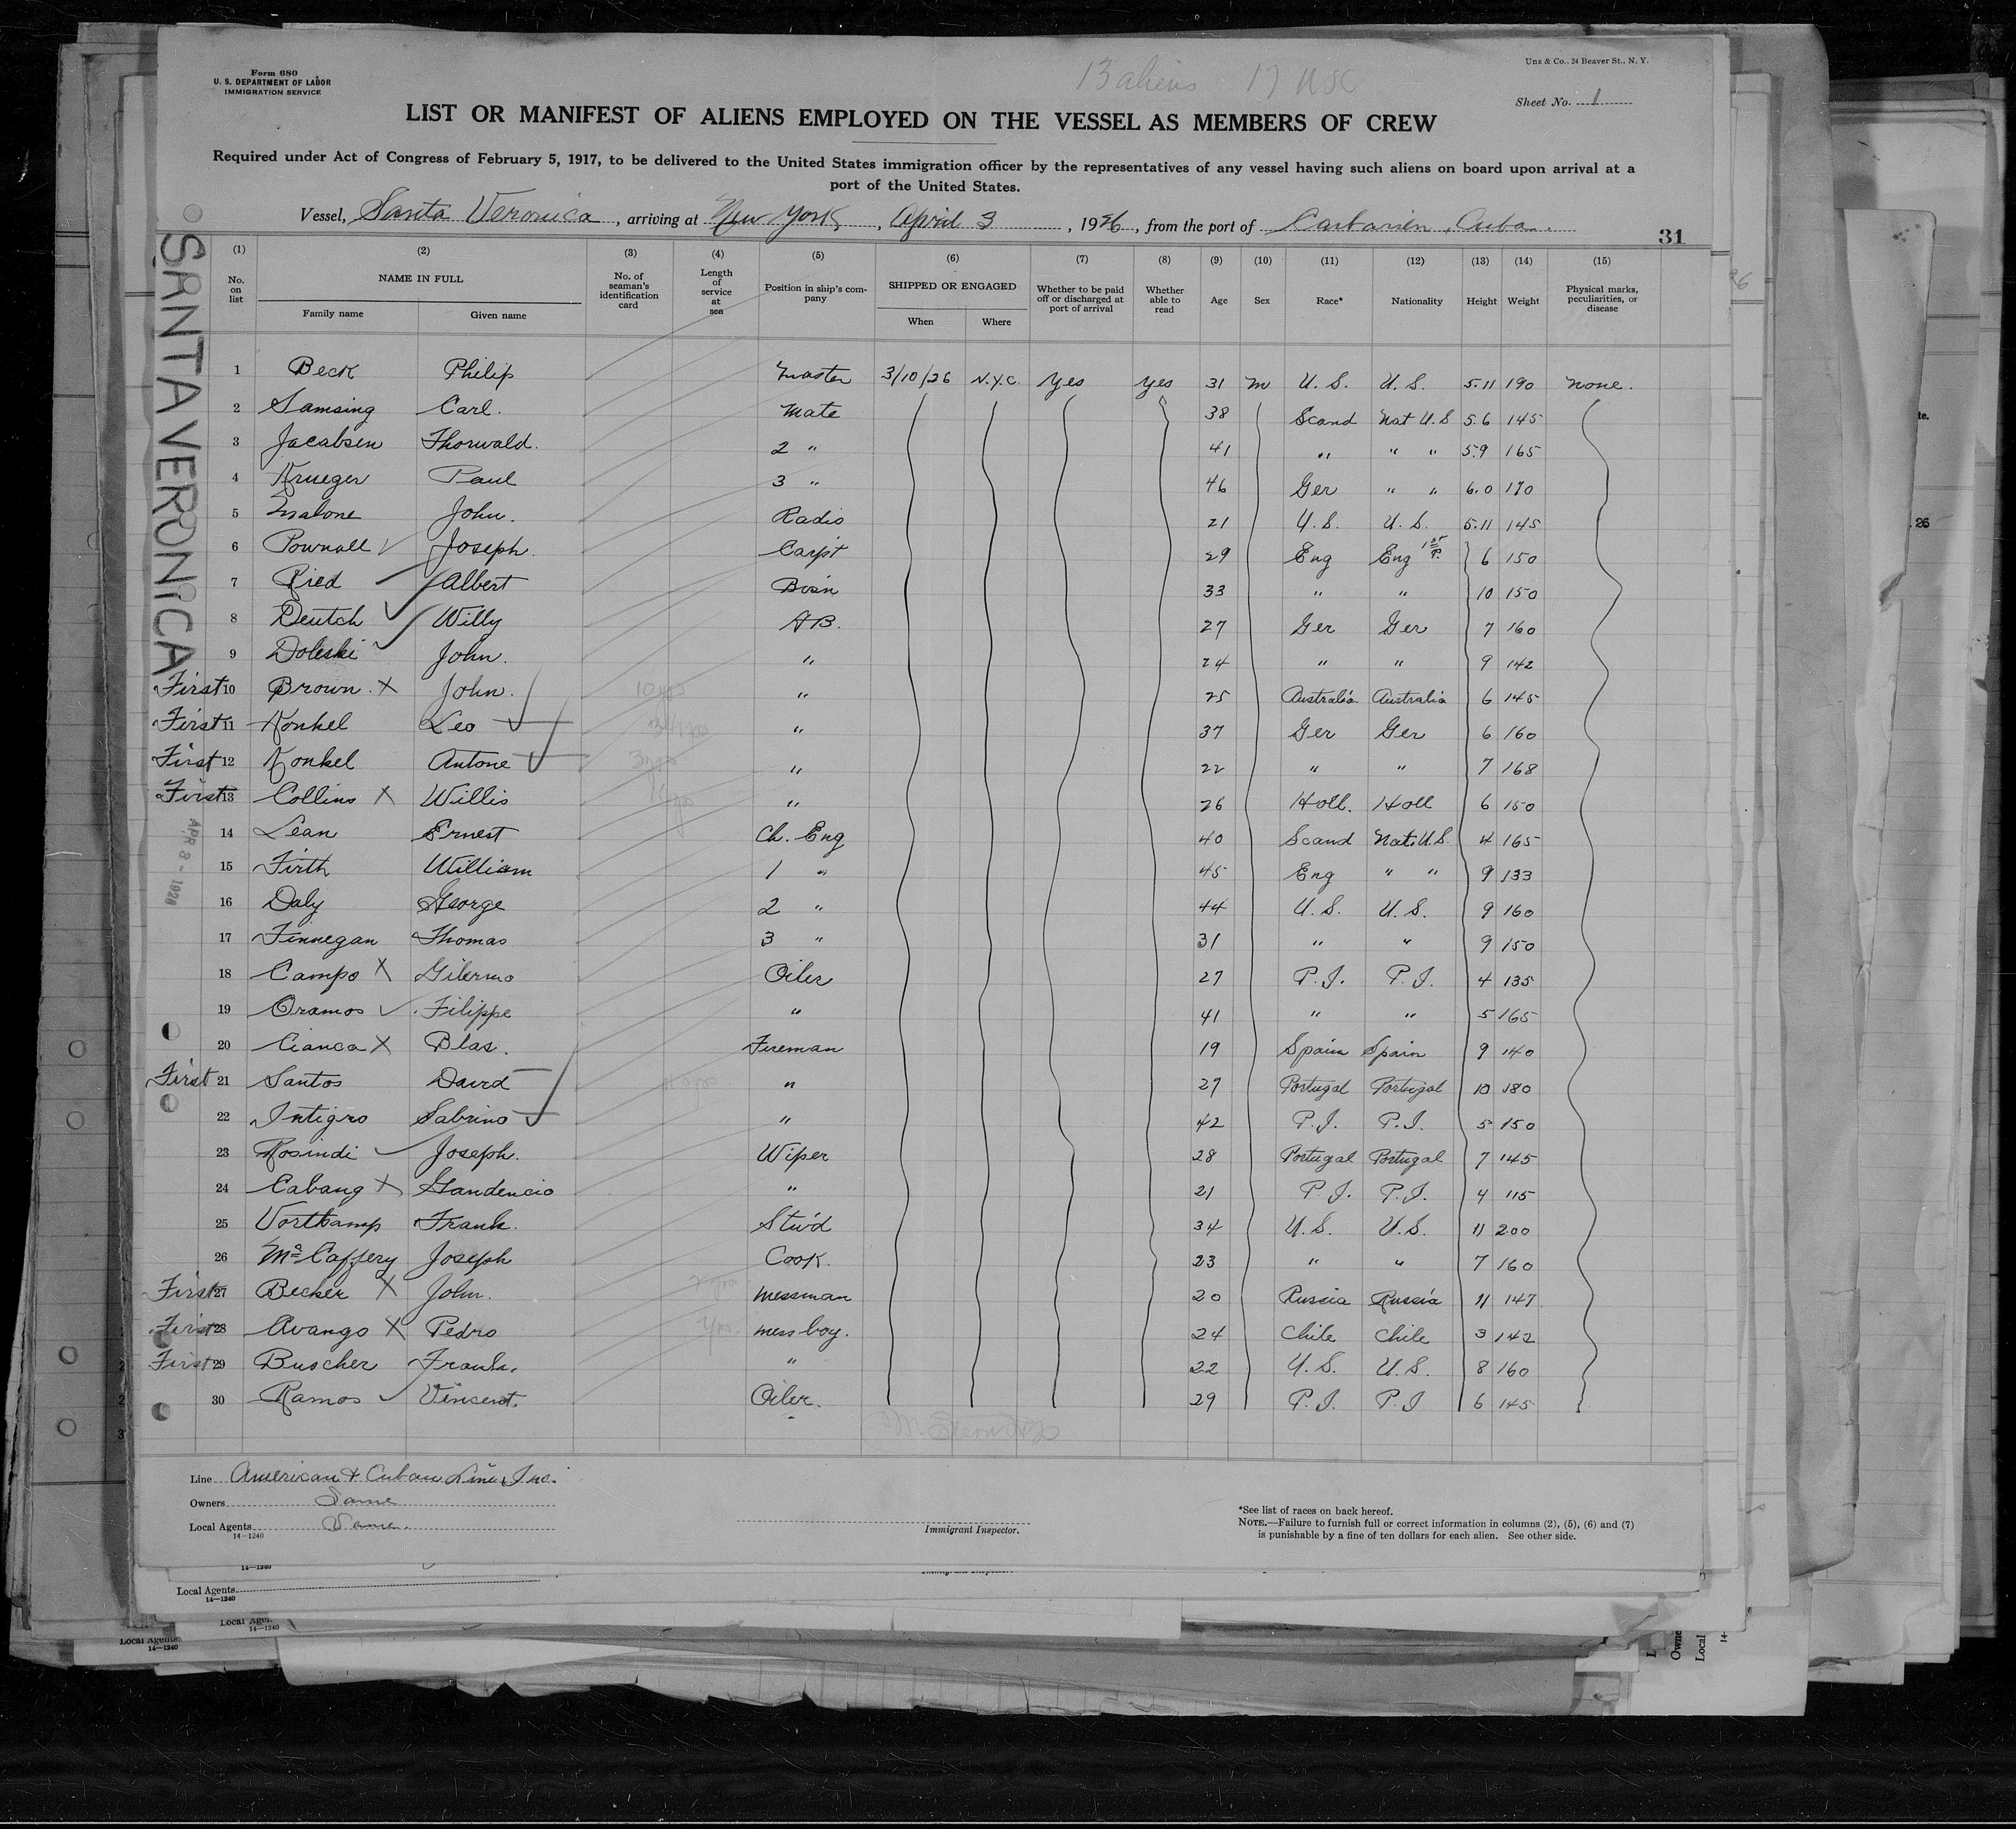 Form 680
U. S. DEPARTMENT OF LABOR
IMMIGRATION SERVICE
13 aliens 17 USC
Unz & Co., 24 Beaver St., N. Y.
Sheet No. 1
LIST OR MANIFEST OF ALIENS EMPLOYED ON THE VESSEL AS MEMBERS OF CREW
Required under Act of Congress of February 5, 1917, to be delivered to the United States immigration officer by the representatives of any vessel having such aliens on board upon arrival at a
port of the United States.
Vessel, Santa Veronica, arriving at New York, April 3, 1926, from the port of Caibarien, Cuba.
31
SANTA VERONICA
(1) (2) (3) (4) (5) (6) (7) (8) (9) (10) (11) (12) (13) (14) (15)
No. on list NAME IN FULL No. of seaman's identification card Length of service at sea Position in ship's company SHIPPED OR ENGAGED Whether to be paid off or discharged at port of arrival Whether able to read Age Sex Race* Nationality Height Weight Physical marks, peculiarities, or disease
Family name Given name When Where
1 Beck Philip Master 3/10/26 N.Y.C. Yes Yes 31 M U.S. U.S. 5.11 190 None.
2 Samsing Carl. Mate 38 Scand Nat U.S 5.6 145
3 Jacabsen Thorwald. 2 " 41 " " " 5.9 165
4 Krueger Paul 3 " 46 Ger " " 6.0 170
5 Malone John. Radio 21 U.S. U.S. 5.11 145
6 Pownall ✓ Joseph. Carpt 29 Eng Eng 1st P. 6 150
7 Ried ✓ Albert Bosn 33 " " 10 150
8 Deutch ✓ Willy AB. 27 Ger Ger 7 160
9 Doleski ✓ John. " 24 " " 9 142
First 10 Brown. X John. " 25 Australia Australia 6 145
First 11 Konkel Leo ✓ " 37 Ger Ger 6 160
First 12 Konkel Antone ✓ " 22 " " 7 168
First 13 Collins X Willis " 26 Holl. Holl 6 150
APR 8 - 1926
14 Lean Ernest Ch. Eng 40 Scand Nat. U.S. 4 165
15 Firth William 1 " 45 Eng " " 9 133
16 Daly George 2 " 44 U.S. U.S. 9 160
17 Finnegan Thomas 3 " 31 " " 9 150
18 Campo X Gilermo Oiler 27 P.I. P.I. 4 135
19 Oramos ✓ Filippe " 41 " " 5 165
20 Cianca X Blas. Fireman 19 Spain Spain 9 140
First 21 Santos David " 27 Portugal Portugal 10 180
22 Intigro Sabrino ✓ " 42 P.I. P.I. 5 150
23 Rosindi ✓ Joseph. Wiper 28 Portugal Portugal 7 145
24 Cabang X Gandencio " 21 P.I. P.I. 4 115
25 Vortkamp Frank. Stwd 34 U.S. U.S. 11 200
26 McCaffery Joseph Cook. 23 " " 7 160
First 27 Becker X John. Messman 20 Russia Russia 11 147
First 28 Avango X Pedro Mess boy. 24 Chile Chile 3 142
First 29 Buscher Frank. " 22 U.S. U.S. 8 160
30 Ramos ✓ Vincent. Oiler. 29 P.I. P.I 6 145
Line American & Cuban Line, Inc.
Owners Same
Local Agents Same.
14—1240
Immigrant Inspector.
*See list of races on back hereof.
NOTE.—Failure to furnish full or correct information in columns (2), (5), (6) and (7)
is punishable by a fine of ten dollars for each alien. See other side.
14—1240
Local Agents
14—1240
Local Agents
14—1240
Local Agents
14—1240